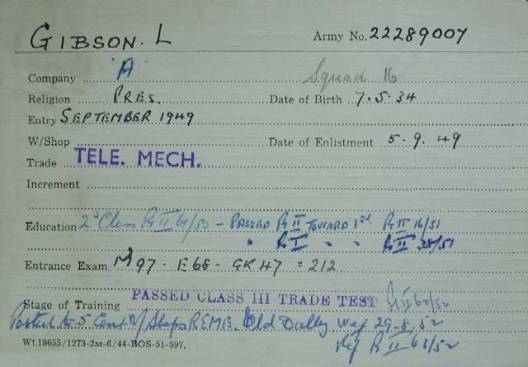 GIBSON. L Army No. 22289007
Company "A" Squad 16
Religion PRES. Date of Birth 7.5.34
Entry SEPTEMBER 1949
W/Shop Date of Enlistment 5.9.49
Trade TELE. MECH.
Increment
Education 2nd Class Pt II 61/50 - PASSED Pt II TOWARD 1st Pt II 16/51
" Pt I " " Pt II 28/51
Entrance Exam. M97 - E68 - GK47 = 212
Stage of Training PASSED CLASS III TRADE TEST Pt II 62/52
Posted to 5 Cent. W/Shops REME. Old Dalby wef 29-8-52
Ref Pt II 63/52
Wt.19655/1273-2M-6/44-BOS-51-597.